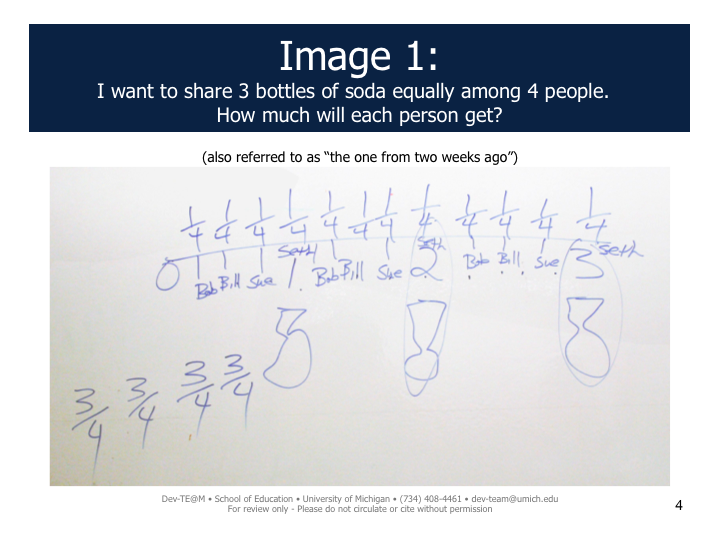 Image 1:
I want to share 3 bottles of soda equally among 4 people.
How much will each person get?
(also referred to as “the one from two weeks ago”)
1/4 1/4 1/4 1/4 1/4 1/4 1/4 1/4 1/4 1/4 1/4 1/4
Seth Seth Seth
0 Bob Bill Sue 1. Bob Bill Sue 2 Bob Bill Sue 3
3/4 3/4 3/4 3/4
Dev-TE@M • School of Education • University of Michigan • (734) 408-4461 • dev-team@umich.edu
For review only - Please do not circulate or cite without permission
4